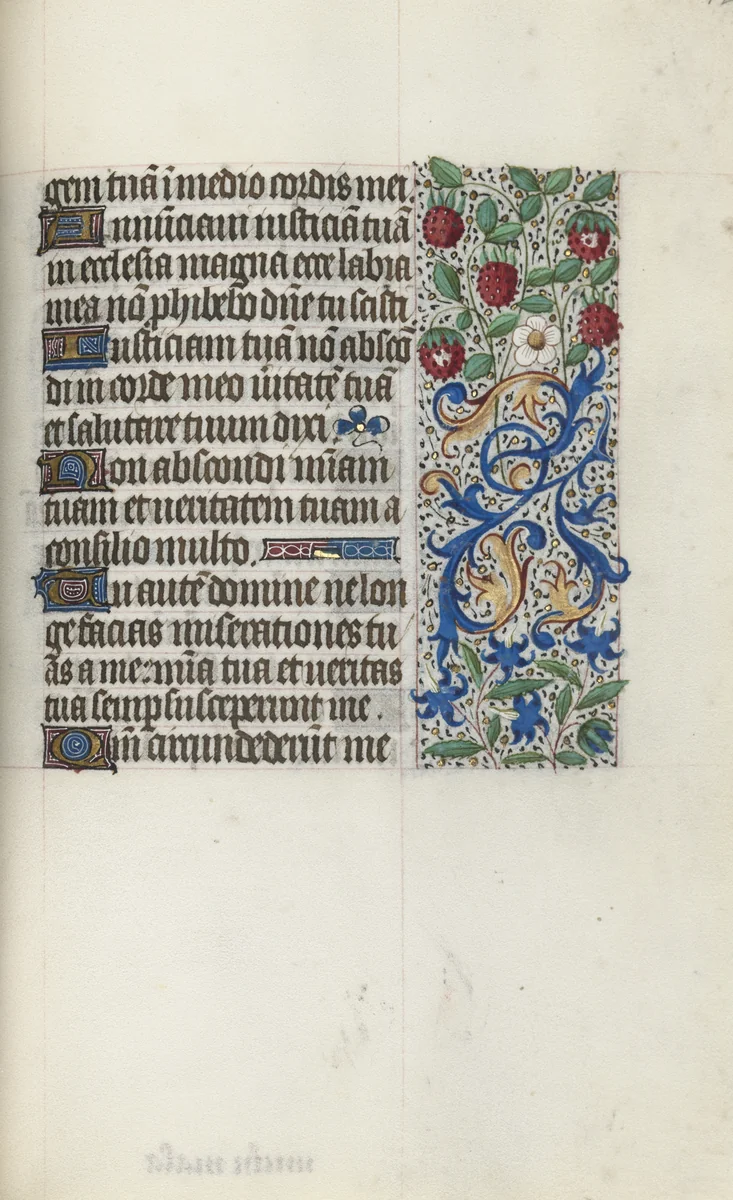 gem tuā ī medio cordis mei.
Annūciaui iusticiā tuā
in ecclesia magna ecce labia
mea nō phibebo dñe tu scisti
Iusticiam tuā nō abscō
di in corde meo ūitatē tuā
et salutare tuum dixi.
Non abscondi mīam
tuam et ueritatem tuam a
consilio multo.
Tu autē domine ne lon
ge facias miserationes tu
ās a me: mīa tua et ueritas
tua semp susceperunt me.
Qm̄ circundederūt me